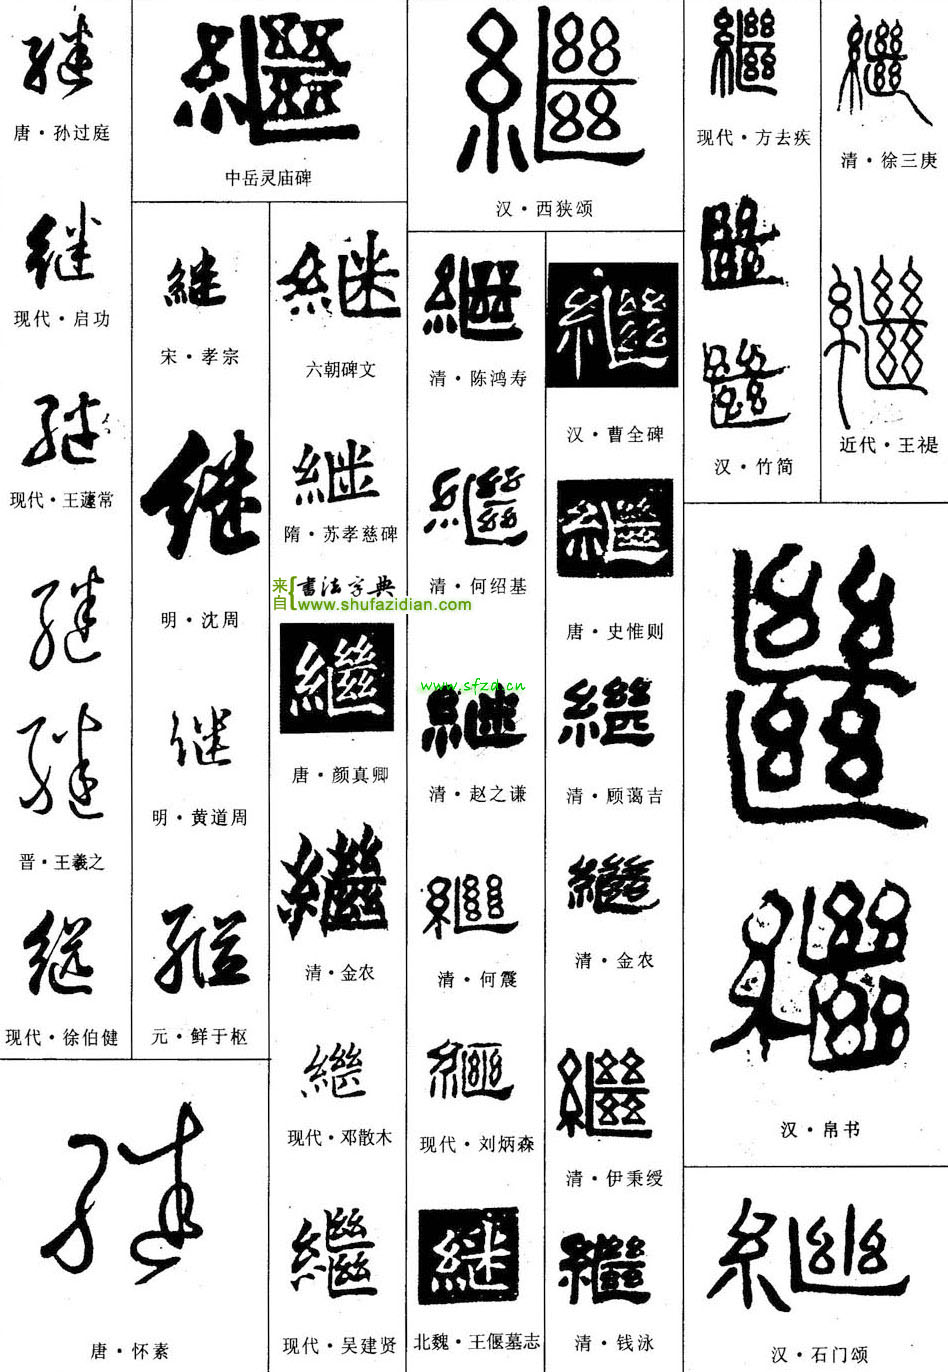 继
唐·孙过庭
继
现代·启功
继
现代·王蘧常
继
继
晋·王羲之
继
现代·徐伯健
继
唐·怀素
繼
中岳灵庙碑
継
宋·孝宗
继
明·沈周
继
明·黄道周
継
元·鲜于枢
継
六朝碑文
継
隋·苏孝慈碑
来自 书法字典
www.shufazidian.com
繼
唐·颜真卿
繼
清·金农
繼
现代·邓散木
繼
现代·吴建贤
繼
汉·西狭颂
繼
清·陈鸿寿
繼
清·何绍基
www.sfzd.cn
継
清·赵之谦
繼
清·何震
繼
现代·刘炳森
継
北魏·王偃墓志
繼
汉·曹全碑
繼
唐·史惟则
繼
清·顾蔼吉
繼
清·金农
繼
清·伊秉绶
繼
清·钱泳
繼
现代·方去疾
汉·竹简
繼
清·徐三庚
繼
近代·王禔
繼
汉·帛书
繼
汉·石门颂